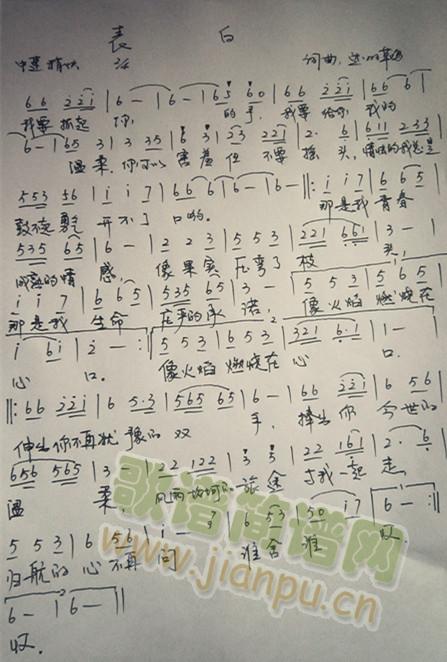 表 白
中速 稍快
词曲:
6 6 2 2 1 | 6 - | 6 - | 6 5 6 0 | 6 6 2 2 1 | 6 6 6 |
我要 抓起 你 的手, 我要 给你 我的
6 - | 6 5 3 | 3 3 5 | 6 3 | 2 3 2 2 1 | 2 · 6 | 6 1 1 2 3 3 |
温柔, 你可以 害羞 但 不要 摇 头, 情怯的我总是
5 5 3 5 6 | i i 7 | 6 6 6 | 6 - | 6 - ‖: i i 7 | 6 6 5 |
鼓起 勇气 开不了 口哟。 那是我 青春
5 3 5 6 5 | 6 - | 2 2 3 | 5 5 3 | 2 2 1 6 5 1 | 3 - |
成熟的情 感, 像果实 压弯了 枝 头,
i i 7 | 6 6 5 | 5 3 5 6 5 | 3 - | 5 5 3 | 5 6 5 |
那是我 生命 庄严的承 诺, 像火焰 燃烧在
i 6 i | 2 - :‖ 5 5 3 | 6 5 3 | 3 2 1 6 · 1 | 1 - |
心 口. 像火焰 燃烧在 心 口.
‖: 6 6 2 2 i | 6 5 · 3 | 5 6 5 6 5 | 6 - | 6 6 2 2 i | 6 5 6 |
伸出 你不再犹 豫的 双 手, 捧出 你 今世的
6 5 6 5 6 5 | 3 - | 2 2 1 2 2 | 3 5 | 2 2 1 6 1 | 2 · 6 |
温 柔, 风雨 坎坷的 旅途 与我一起 走,
5 5 3 | 6 5 6 | i - | 6 5 3 | 5 0 | i 7 | 6 - :‖
归航的 心 不再 问 谁舍 谁 收.
6 - | 6 - ‖
收.
歌谱简谱网
www.jianpu.cn